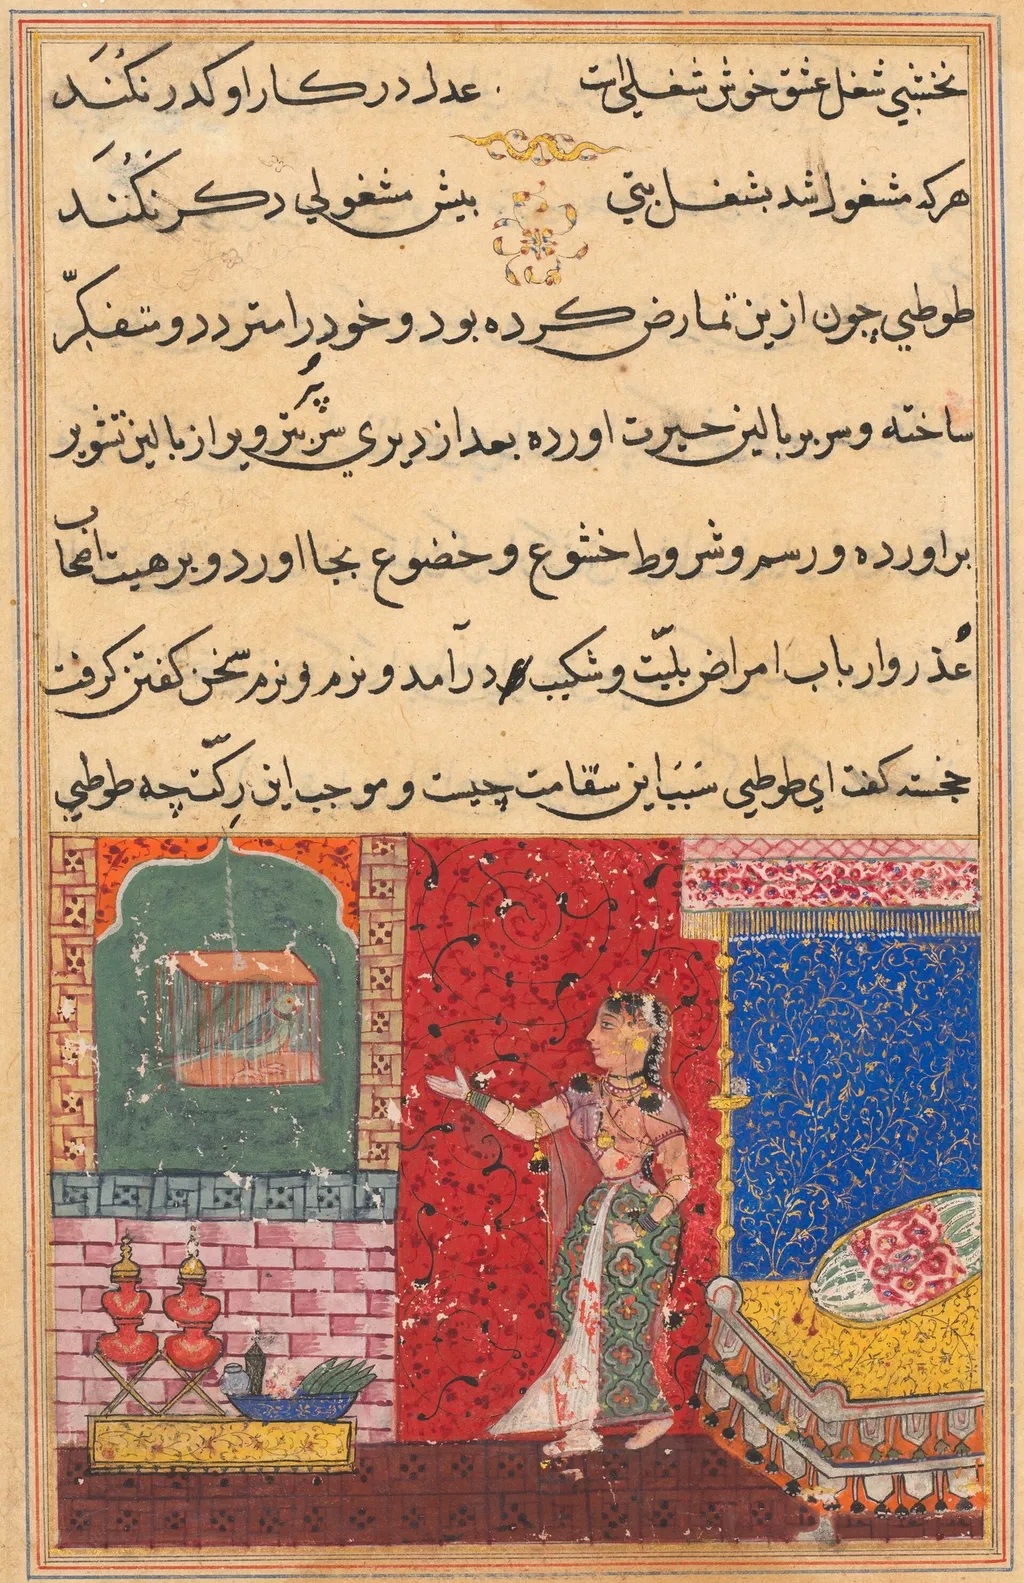 نخشبي شغل عشق خوش شغلي است عدل در كار او كدر نكند
هركه مشغول شد بشغل بتي بيش مشغولي دكر نكند
طوطي چون ازين تمارض كرده بود و خود را متردد و متفكر
ساخته و سر بر بالين حيرت اورده بعد از ديري سر پر تزوير از بالين تشوير
براورده و رسم و شروط خشوع و خضوع بجا اورد و بر هيت اصحاب
عذر و ارباب امراض بليت و شكيب درآمد و نرم و نرم سخن كفتن كرفت
خجسته كفت اي طوطي سبب اين سقامت چيست و موجب اين ركت چه طوطي